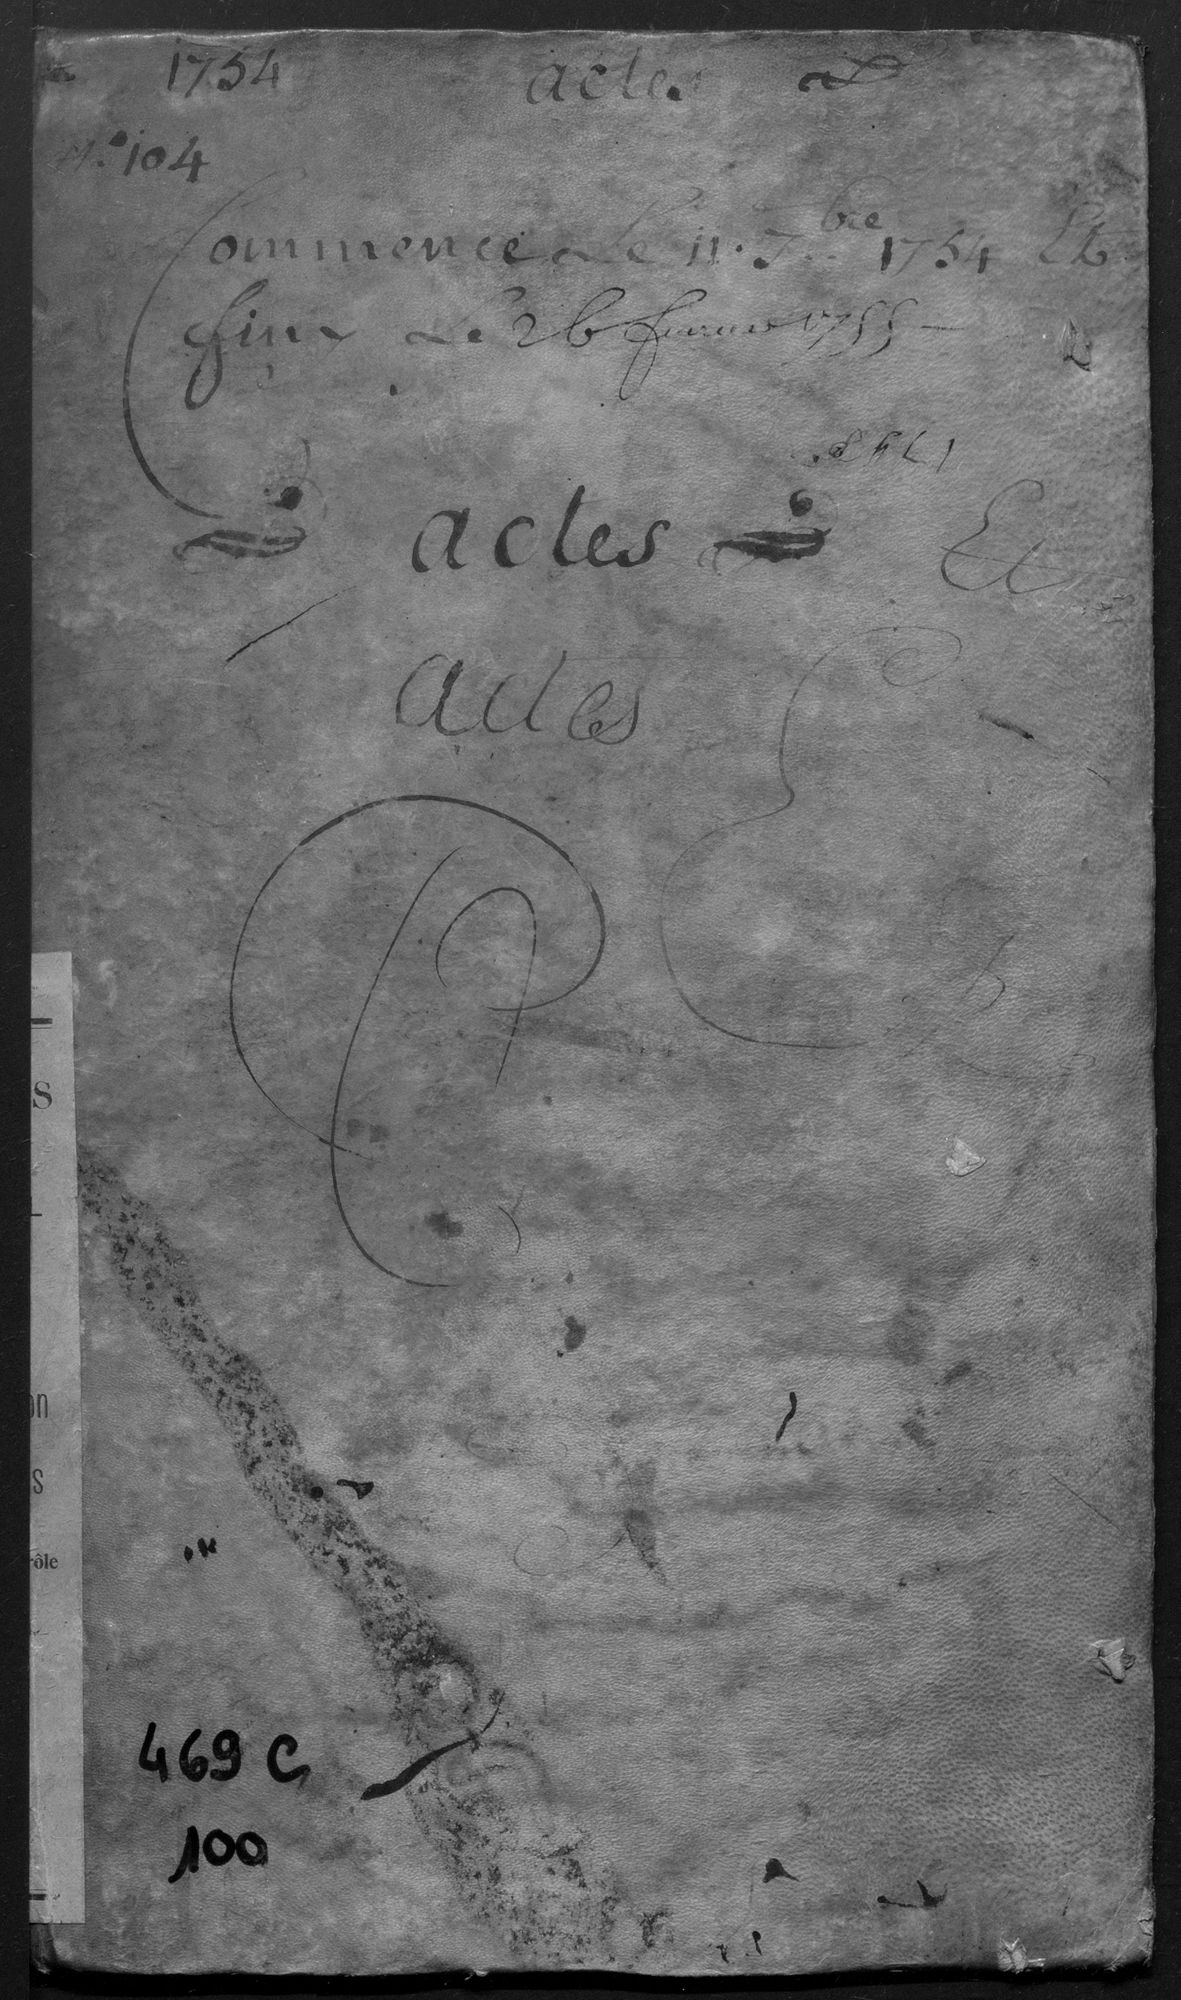 1754 actes
N.º 104
Commence Le 11. 7.bre 1754 Et
finy Le 26 fevrier 1755
actes Et
actes
S
on
s
rôle
469 C
100